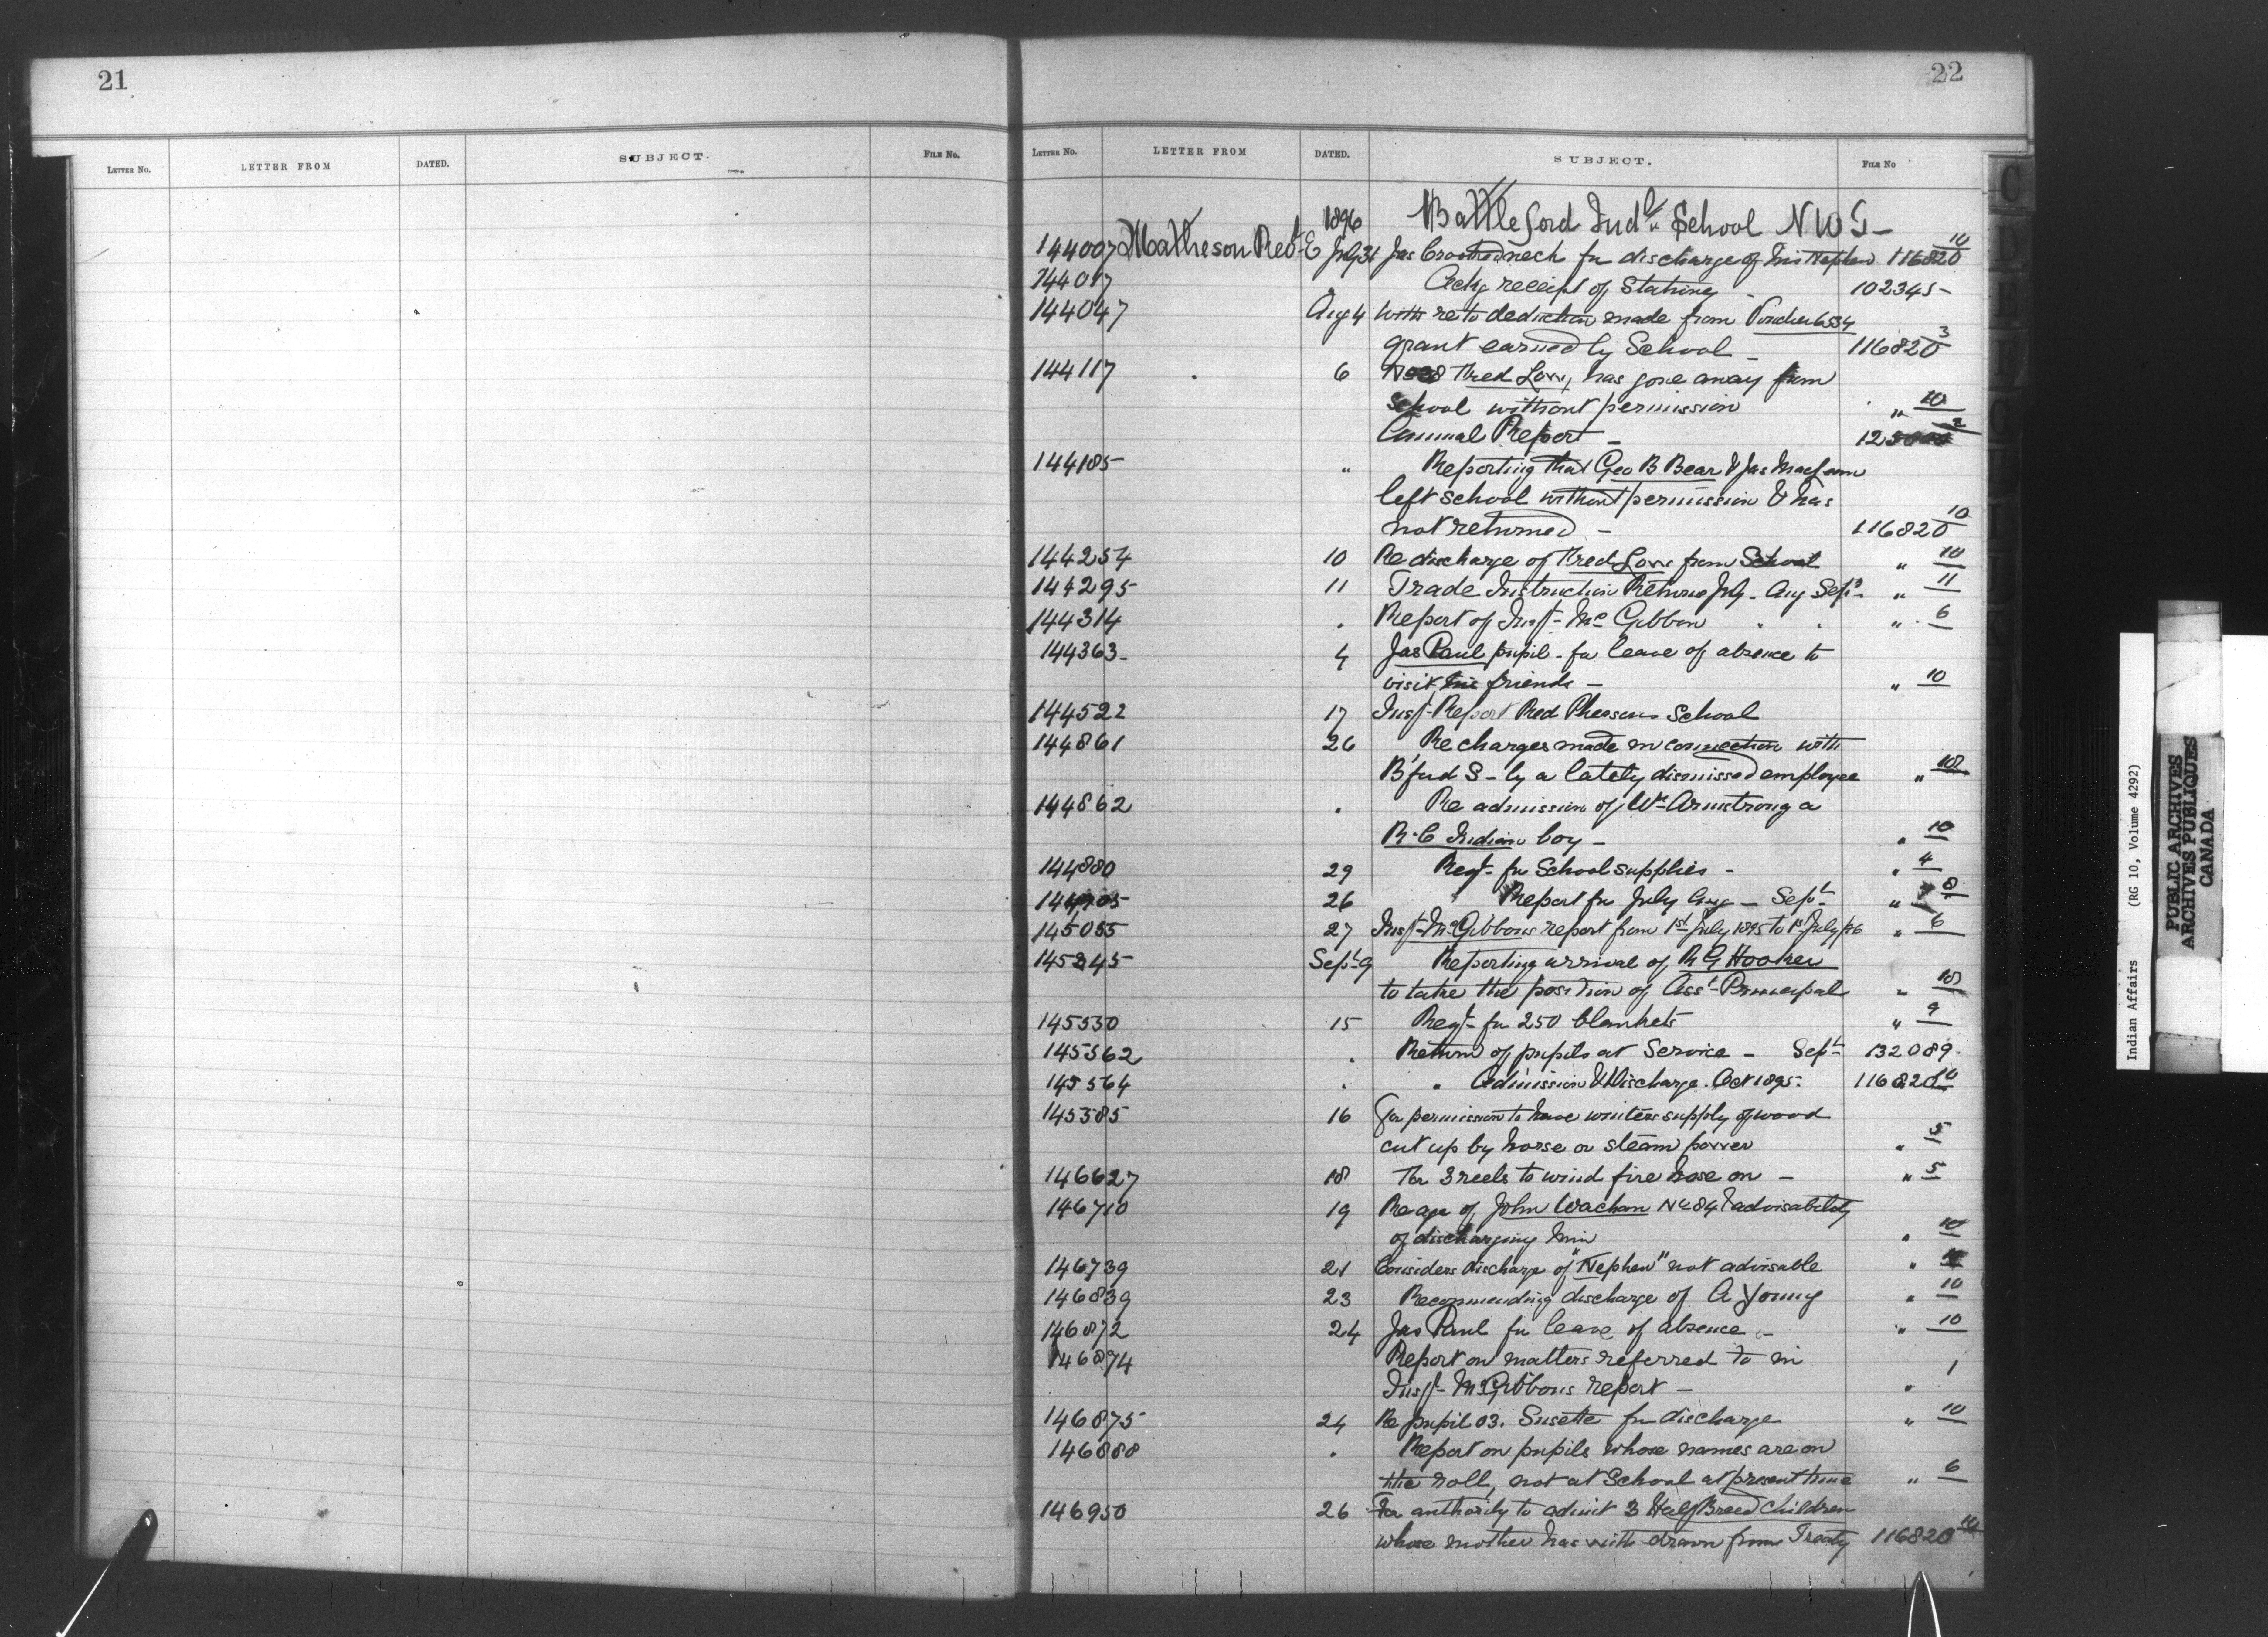 21
LETTER NO. LETTER FROM DATED. SUBJECT. FILE NO.
22
LETTER NO. LETTER FROM DATED. SUBJECT. FILE NO
1896 Battleford Indl School N W T -
144007 Matheson Revd E July 31 Jas Crookedneck for discharge of his Nephew 116820 10
144017 " Ackg receipt of Stationery - 102345-
144047 Aug 4 with re to deduction made from Voucher 6534
grant earned by School - 116820 3
144117 6 Fred Low, has gone away from
School without permission " 10
Annual Report - 2
144185 " Reporting that Geo B Bear & Jas
left school without permission & has
not returned - 116820 10
144254 10 Re discharge of Fred Low from School " 10
144295 11 Trade Instruction Returns July - Aug Sept " 11
144314 " Report of Inspr Mc Gibbon " 6
144363- 4 Jas Paul pupil - for leave of absence to
visit his friends - " 10
144522 17 Insp. Report Red Pheasans School
144861 26 Re charges made in connection with
B'ford S - by a lately dismissed employee " 10
144862 " Re admission of Wm Armstrong a
R.C Indian boy - " 10
144880 29 Reqt for School supplies - " 4
26 Report for July Aug - Sept " 8
145055 27 Inspr McGibbons report from 1st July 1895 to 1st July /96 " 6
145245 Sept 9 Reporting arrival of R G Hooker
to take the position of Asst Principal " 10
145530 15 Reqt for 250 blankets " 9
145562 " Return of pupils at Service - Sept 132089.
145564 " " Admission & Discharge. Oct 1895. 116820 10
145585 16 For permission to have winters supply of wood
cut up by horse or steam power " 5
146627 18 For 3 reels to wind fire hose on - " 5
146710 19 Re age of John Wachan No 84 & advisability
of discharging him " 10
146739 21 Considers discharge of "Nephew" not advisable "
146839 23 Recommending discharge of A Young " 10
146872 24 Jas Paul for leave of absence - " 10
146874 Report on matters referred to in
Inspr McGibbons report - " 1
146875 24 Re pupil 03. Susette for discharge " 10
146888 " Report on pupils whose names are on
the roll, not at School at present time " 6
146950 26 For authority to admit 3 Half Breed children
whose mother has with drawn from Treaty 116820 10
C
D
E
Indian Affairs (RG 10, Volume 4292)
PUBLIC ARCHIVES
ARCHIVES PUBLIQUES
CANADA